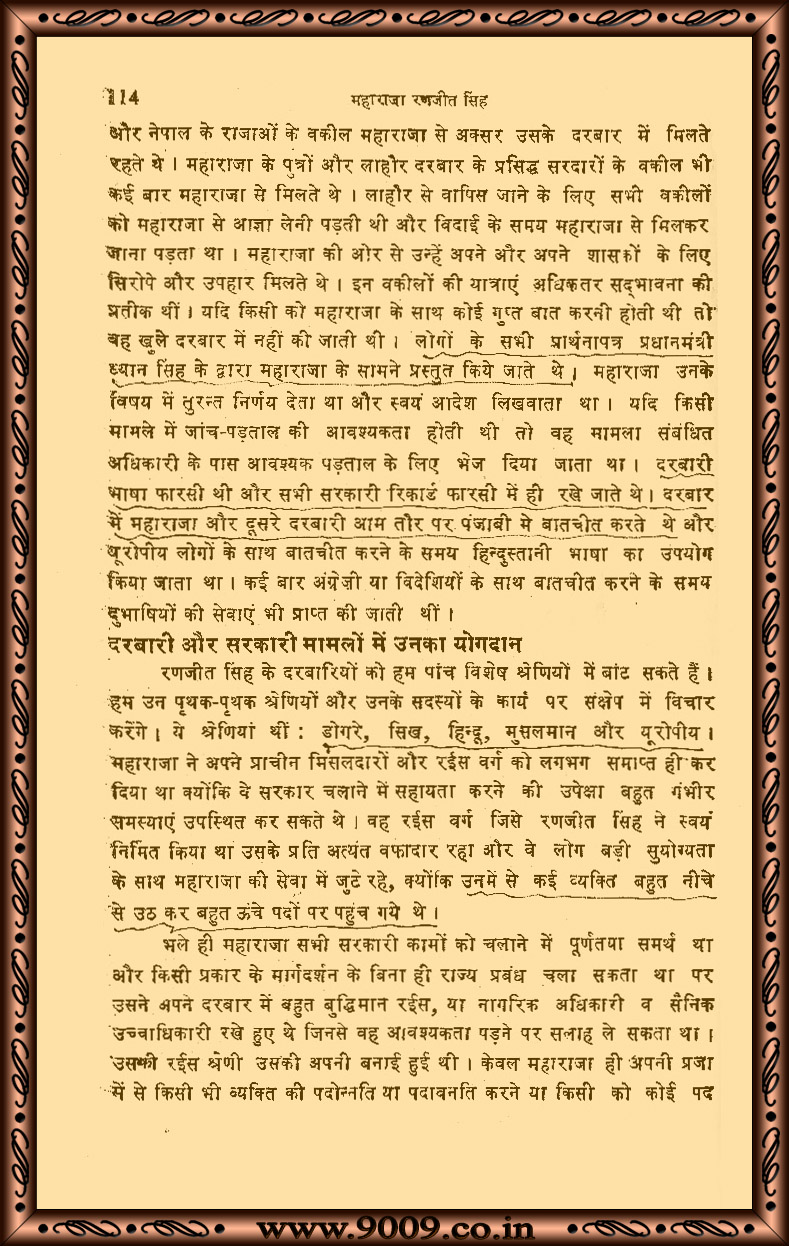 114
महाराजा रणजीत सिंह
और नेपाल के राजाओं के वकील महाराजा से अक्सर उसके दरबार में मिलते
रहते थे । महाराजा के पुत्रों और लाहौर दरबार के प्रसिद्ध सरदारों के वकील भी
कई बार महाराजा से मिलते थे । लाहौर से वापिस जाने के लिए सभी वकीलों
को महाराजा से आज्ञा लेनी पड़ती थी और विदाई के समय महाराजा से मिलकर
जाना पड़ता था । महाराजा की ओर से उन्हें अपने और अपने शासकों के लिए
सिरोपे और उपहार मिलते थे । इन वकीलों की यात्राएं अधिकतर सद्भावना की
प्रतीक थीं । यदि किसी को महाराजा के साथ कोई गुप्त बात करनी होती थी तो
वह खुले दरबार में नहीं की जाती थी । लोगों के सभी प्रार्थनापत्र प्रधानमंत्री
ध्यान सिंह के द्वारा महाराजा के सामने प्रस्तुत किये जाते थे । महाराजा उनके
विषय में तुरन्त निर्णय देता था और स्वयं आदेश लिखवाता था । यदि किसी
मामले में जांच-पड़ताल की आवश्यकता होती थी तो वह मामला संबंधित
अधिकारी के पास आवश्यक पड़ताल के लिए भेज दिया जाता था । दरबारी
भाषा फारसी थी और सभी सरकारी रिकार्ड फारसी में ही रखे जाते थे । दरबार
में महाराजा और दूसरे दरबारी आम तौर पर पंजाबी मे बातचीत करते थे और
यूरोपीय लोगों के साथ बातचीत करने के समय हिन्दुस्तानी भाषा का उपयोग
किया जाता था । कई बार अंग्रेज़ी या विदेशियों के साथ बातचीत करने के समय
दुभाषियों की सेवाएं भी प्राप्त की जाती थीं ।
दरबारी और सरकारी मामलों में उनका योगदान
रणजीत सिंह के दरबारियों को हम पांच विशेष श्रेणियों में बांट सकते हैं ।
हम उन पृथक-पृथक श्रेणियों और उनके सदस्यों के कार्य पर संक्षेप में विचार
करेंगे । ये श्रेणियां थीं : डोगरे, सिख, हिन्दू, मुसलमान और यूरोपीय ।
महाराजा ने अपने प्राचीन मिसलदारों और रईस वर्ग को लगभग समाप्त ही कर
दिया था क्योंकि वे सरकार चलाने में सहायता करने की उपेक्षा बहुत गंभीर
समस्याएं उपस्थित कर सकते थे । वह रईस वर्ग जिसे रणजीत सिंह ने स्वयं
निर्मित किया था उसके प्रति अत्यंत वफादार रहा और वे लोग बड़ी सुयोग्यता
के साथ महाराजा की सेवा में जुटे रहे, क्योंकि उनमें से कई व्यक्ति बहुत नीचे
से उठ कर बहुत ऊंचे पदों पर पहुंच गये थे ।
भले ही महाराजा सभी सरकारी कामों को चलाने में पूर्णतया समर्थ था
और किसी प्रकार के मार्गदर्शन के बिना ही राज्य प्रबंध चला सकता था पर
उसने अपने दरबार में बहुत बुद्धिमान रईस, या नागरिक अधिकारी व सैनिक
उच्चाधिकारी रखे हुए थे जिनसे वह आवश्यकता पड़ने पर सलाह ले सकता था ।
उसकी रईस श्रेणी उसकी अपनी बनाई हुई थी । केवल महाराजा ही अपनी प्रजा
में से किसी भी व्यक्ति की पदोन्नति या पदावनति करने या किसी को कोई पद
www.9009.co.in